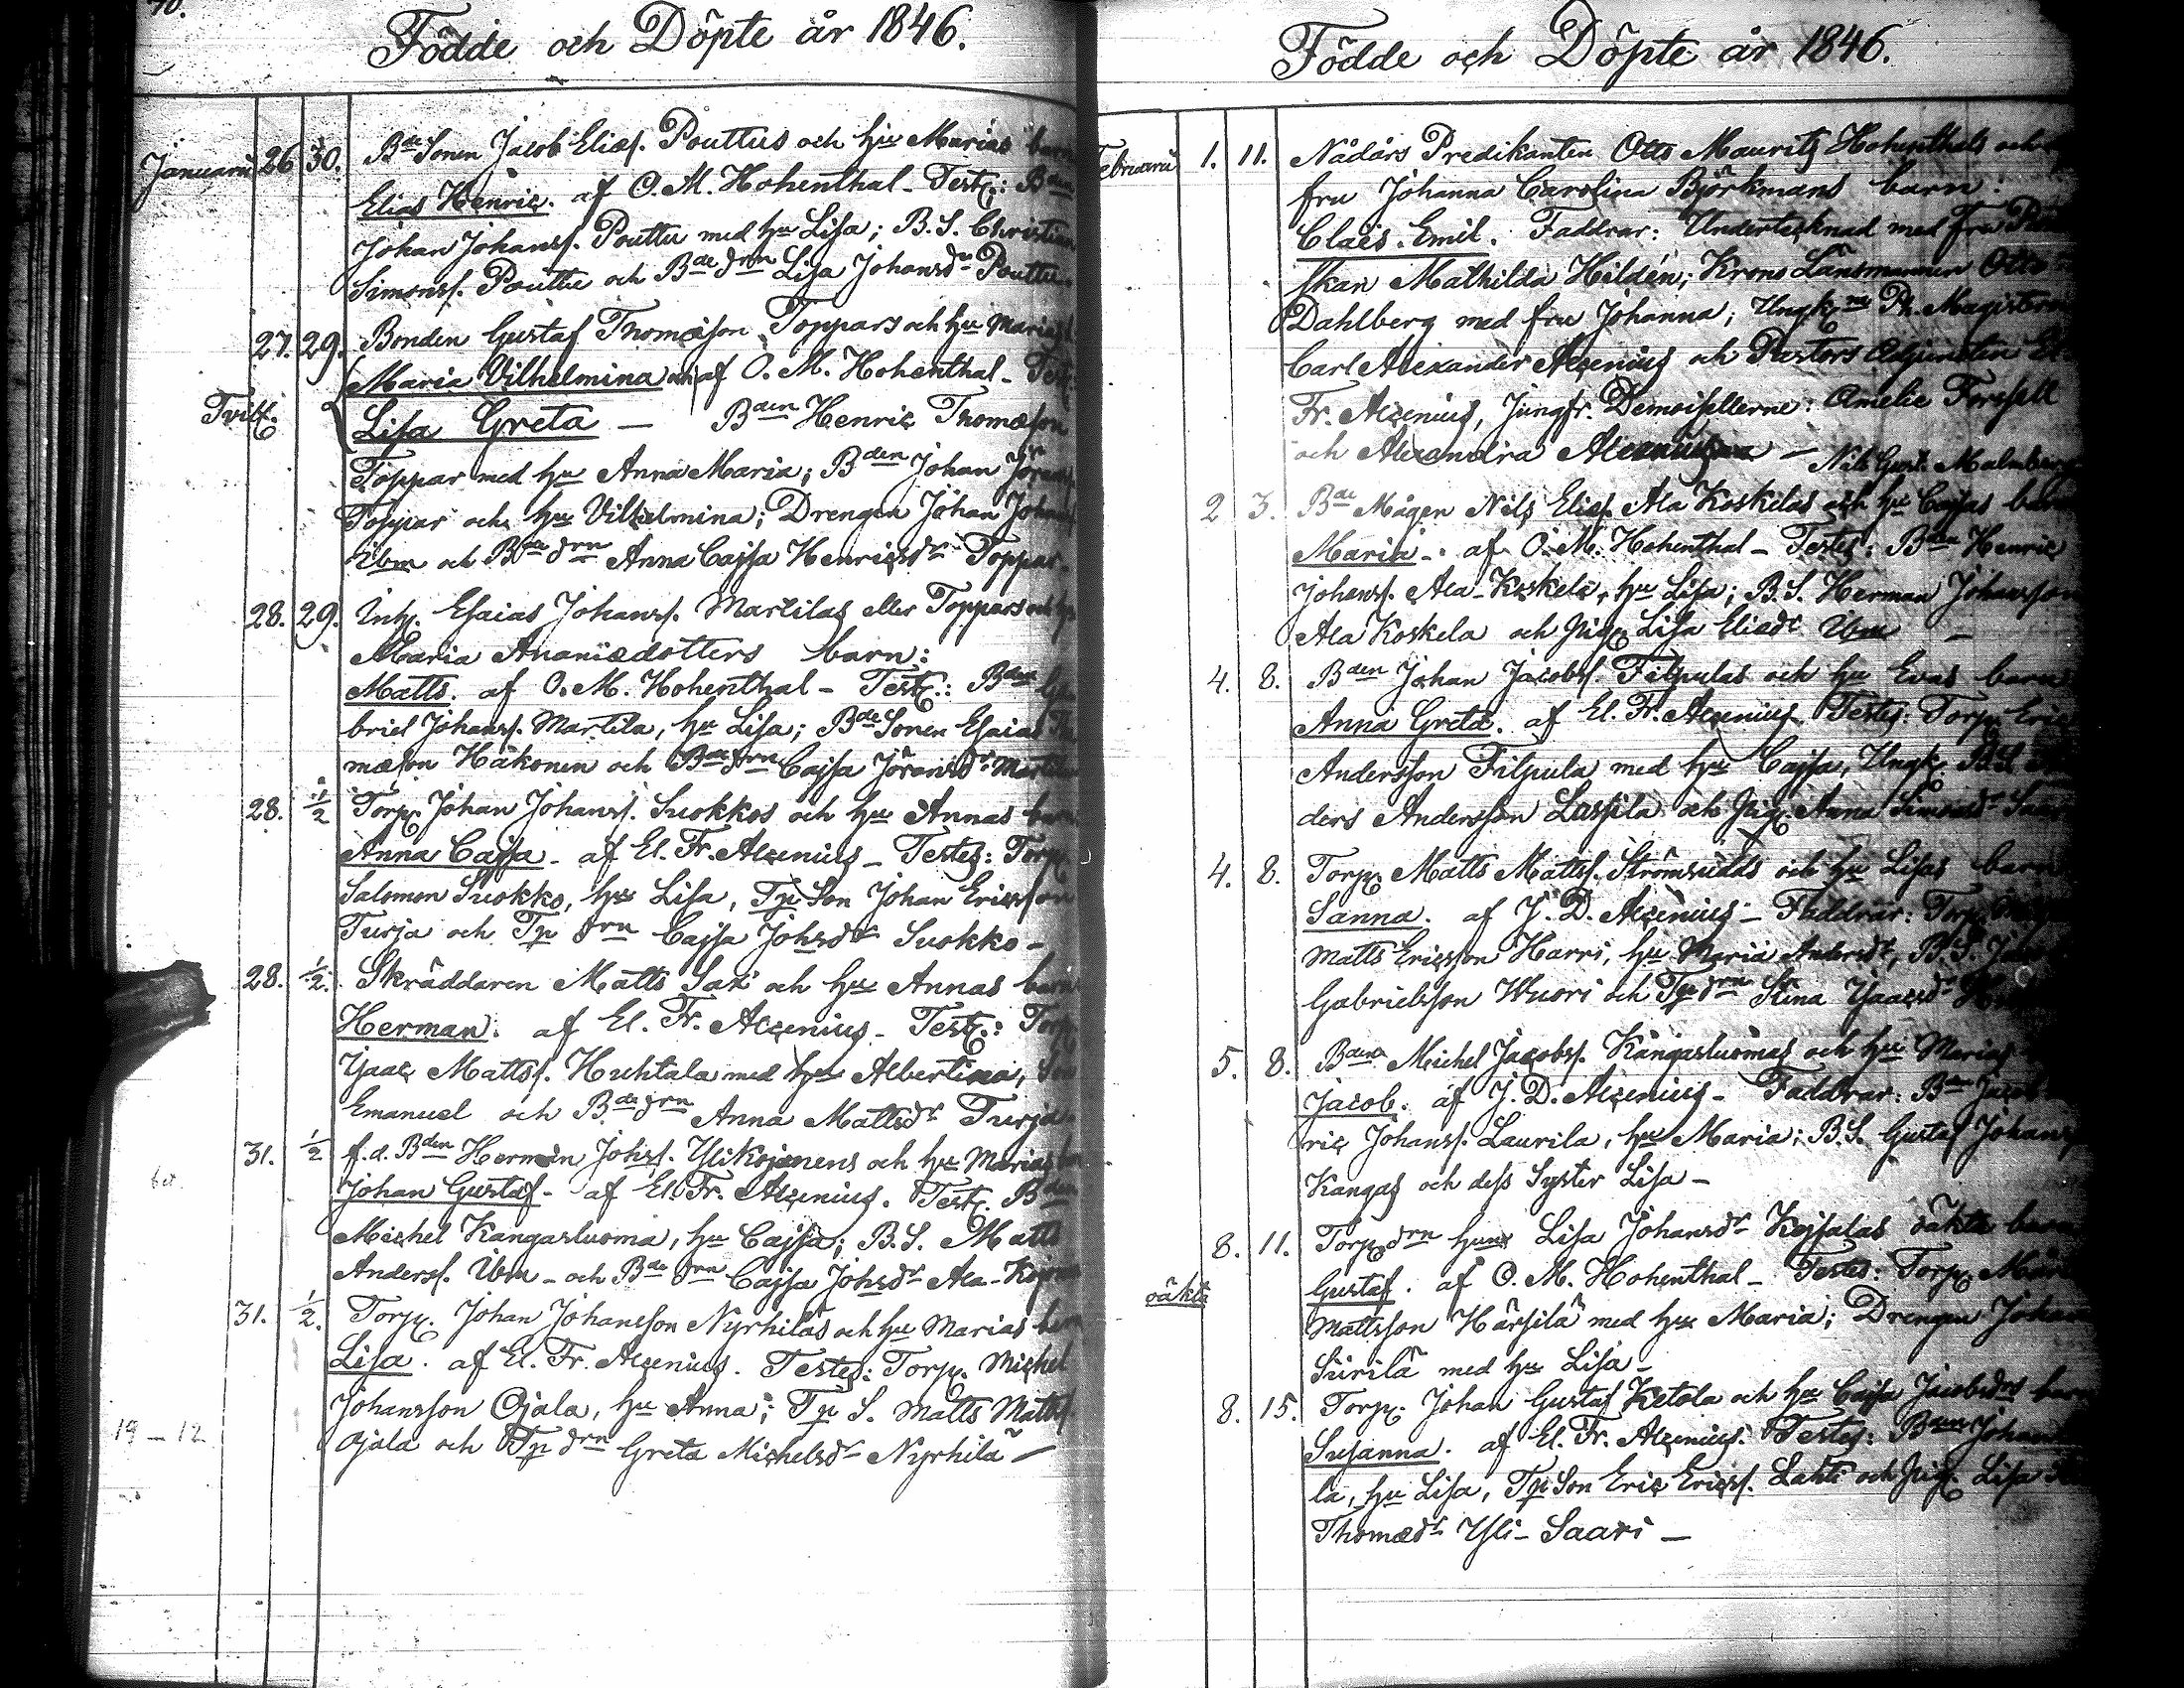 70.
Födde och Döpte år 1846.
Januari 26 30. Bde Sonen Jacob Eliæs. Pouttus och hu Marias barn
Elias Henric. af O. M. Hohenthal - Test: Bden
Johan Johanss. Pouttu med hu Lisa; B. S. Christian
Simonss. Pouttu och Bde drn Lisa Johansdr Pouttu.
27. 29. Bonden Gustaf Thomæson Toppars och hu Marias
Maria Vilhelmina och af O. M. Hohenthal - Test
Tvill. Lisa Greta — Bden Henric Thomæson
Toppar med hu Anna Maria; Bden Johan
Toppar och hu Vilhelmina; Drengen Johan
Ibm och Bde drn Anna Cajsa Henricsdr Toppar-
28. 29. Inh. Esaias Johanss. Martilas eller Toppars och
Maria Ananiædotters barn:
Matts. af O. M. Hohenthal - Test: Bden
briel Johanss. Martila, hu Lisa; Bde Sonen Esaias
mæson Häkonen och Bde drn Cajsa Jöransdr Martila
28. 1/2 Torp. Johan Johanss. Suokkos och hu Annas barn
Anna Cajsa - af El. Fr. Alcenius - Testes: Torp.
Salomon Suokko, hu Lisa, Tp Son Johan Ericsson
Turja och Tp drn Cajsa Johsdr Suokko -
28. 1/2. Skräddaren Matts Sax och hu Annas barn
Herman. af El. Fr. Alcenius - Test: Torp
Isaac Mattss. Huhtala med hu Albertina,
Emanuel och Bde drn Anna Mattsdr Turja
31. 1/2 f. d. Bden Herman Johss. Ylikojonens och hu Marias
Johan Gustaf - af El. Fr. Alcenius. Test. Bden
Michel Kangasluoma, hu Cajsa; B. S. Matts
Anderss. Ibm - och Bde drn Cajsa Johsdr Ala-
31. 1/2. Torp. Johan Johansson Nyrhiläs och hu Marias barn
Lisa. af El. Fr. Alcenius. Testes: Torp. Michel
Johansson Ojala, hu Anna; Tp S. Matts Mattss.
Ojala och Tp drn Greta Michelsdr Nyrhilä -
19 - 12
Födde och Döpte år 1846.
Februari 1. 11. Nådårs Predikanten Otto Mauritz Hohenthals och
fru Johanna Carolina Björkmans barn:
Claës Emil. Faddrar: Undertecknad med fru
skan Mathilda Hildén; Krono Länsmannen Otto
Dahlberg med fru Johanna; Ungk. Ph. Magistern
Carl Alexander Alcenius och Pastors Adjuncten El.
Fr. Alcenius, Jungfr. Demoisellerne: Amelie Forssell
och Alexandra Alcenius — Nils Gust. Malmberg
2 3. Bde Mågen Nils Elias. Ala Koskelas och hu Cajsas barn
Maria - af O. M. Hohenthal - Testes: Bden Henric
Johanss. Ala-Koskela, hu Lisa; B. S. Herman Johansson
Ala Koskela och Pig. Lisa Eliædr Ibm -
4. 8. Bden Johan Jacobss. Filpulas och hu Evas barn
Anna Greta. af El. Fr. Alcenius. Testes: Torp. Eric
Andersson Filpula med hu Cajsa, Ungk. B. S.
ders Andersson Lassila och Pig. Anna Simonsdr
4. 8. Torp. Matts Mattss. Strömsudds och hu Lisas barn
Sanna. af J. D. Alcenius - Faddrar: Torp.
Matts Ericsson Harri, hu Maria Andersdr, B. S.
Gabrielsson Wuori och Tp drn Stina Isaacsdr
5. 8. Bden Michel Jacobss. Kangasluomas och hu Marias
Jacob. af J. D. Alcenius - Faddrar: Bden Jacob
ric Johanss. Laurila, hu Maria; B. S. Gustaf Johanss.
Kangas och dess Syster Lisa -
8. 11. Torp. drn Lisa Johansdr Kojsalas oäkta barn
oäkta Gustaf. af O. M. Hohenthal - Testes: Torp.
Mattsson Härsilä med hu Maria; Drengen Johan
Siirilä med hu Lisa -
8. 15. Torp. Johan Gustaf Ketola och hu Cajsa Jacobsdrs barn
Susanna. af El. Fr. Alcenius. Testes: Bden Johan
la, hu Lisa, Tp Son Eric Ericss. Lahti och Pig. Lisa
Thomædr Yli-Saari -